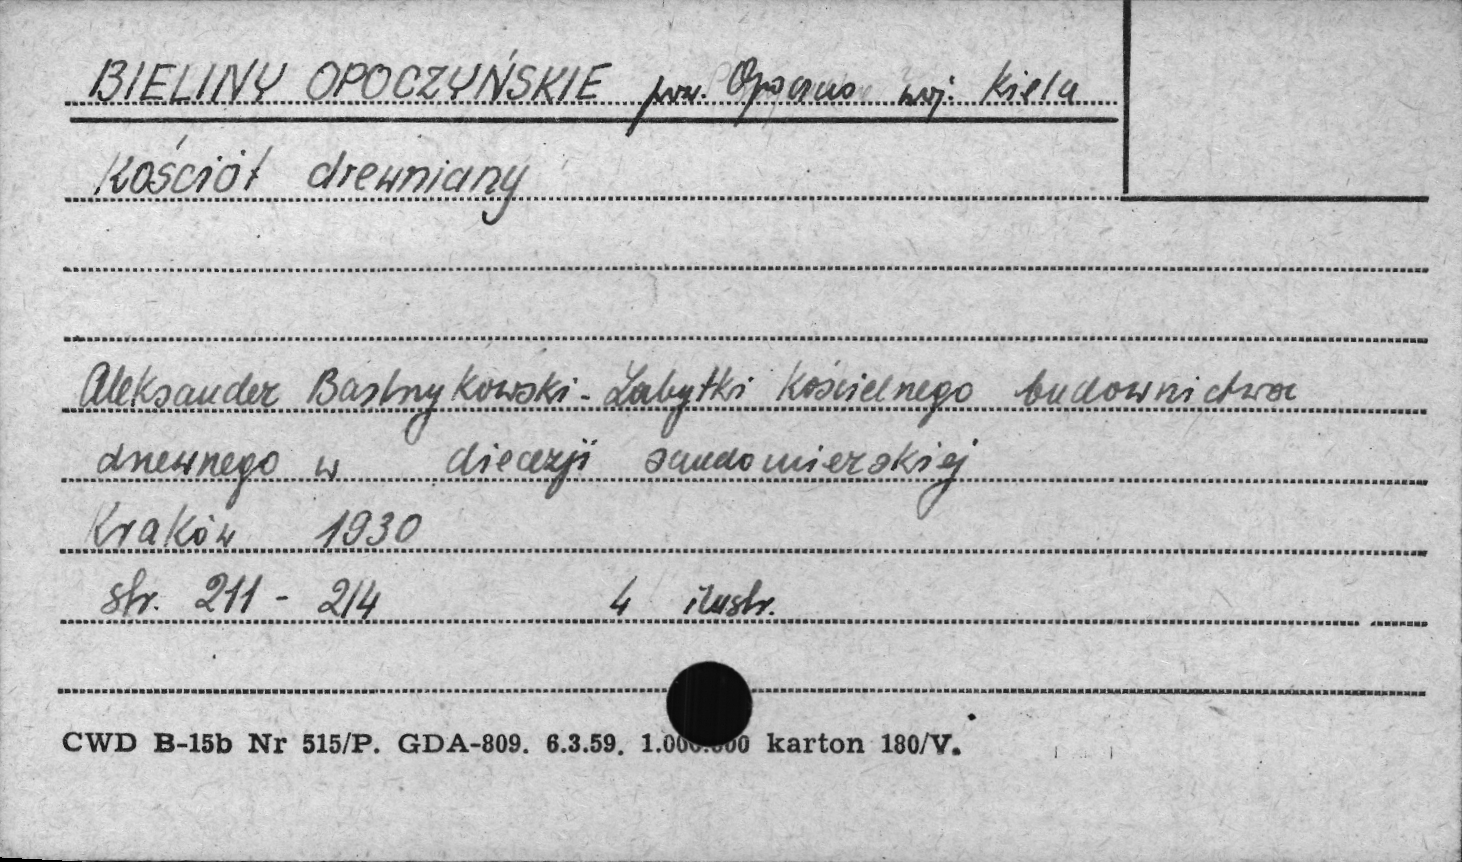 BIELINY OPOCZYŃSKIE pow. Opoczno woj. Kielce
Kościół drewniany
Aleksander Bastrzykowski - Zabytki Kościelnego budownictwa
drzewnego w diecezji sandomierskiej
Kraków 1930
str. 211 - 214 4 ilustr.
CWD B-15b Nr 515/P. GDA-809. 6.3.59. 1.000.000 karton 180/V.